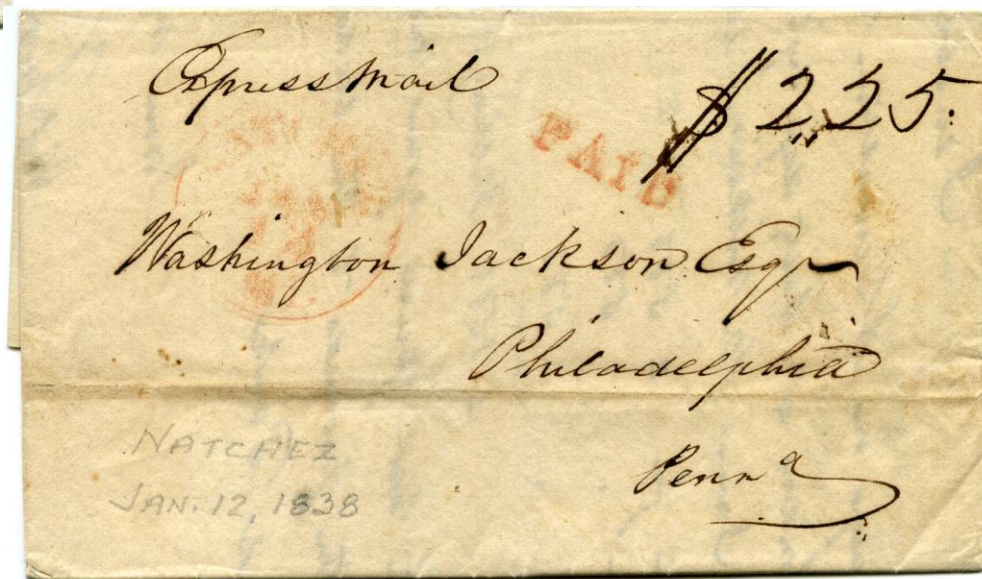 Express Mail
$2,25.
PAID
Washington Jackson Esqr
Philadelphia
Penna
NATCHEZ
JAN. 12, 1838